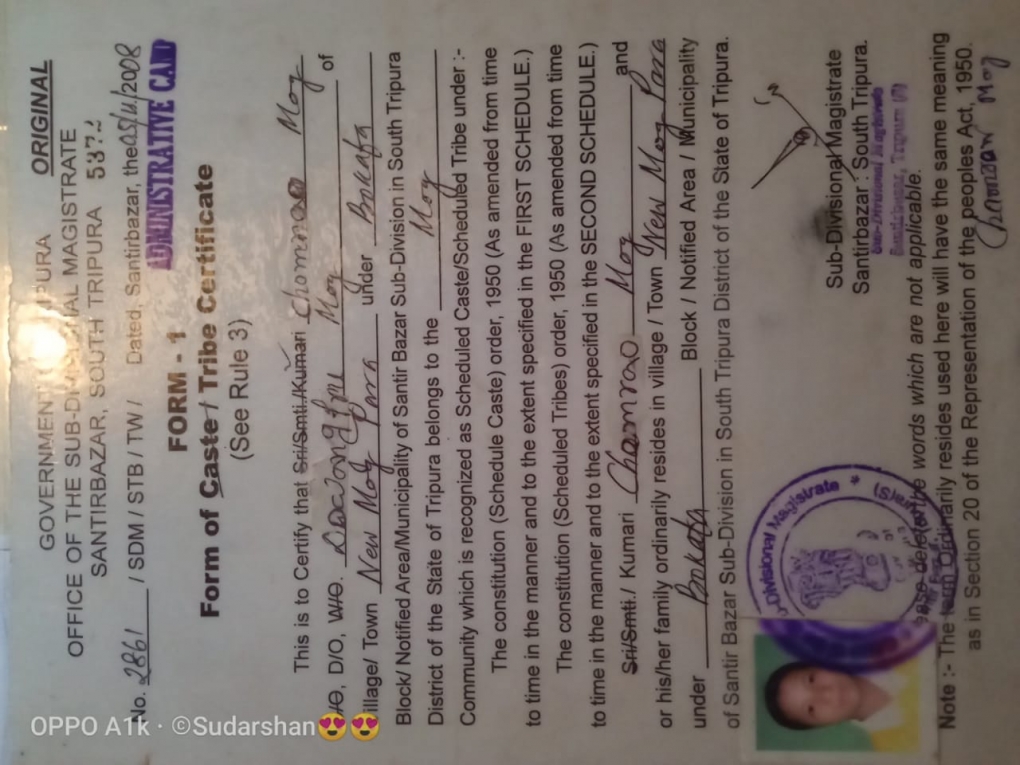 GOVERNMENT TRIPURA ORIGINAL
OFFICE OF THE SUB-DIVISIONAL MAGISTRATE
SANTIRBAZAR, SOUTH TRIPURA
No. 2861 / SDM / STB / TW / Dated, Santirbazar, the /2008
ADMINISTRATIVE CAMP
FORM - 1
Form of Caste / Tribe Certificate
(See Rule 3)
This is to Certify that Sri/Smti./Kumari Mog
D/O, W/O. Mog of
Village/ Town New Mog Para under Bokafa
Block/ Notified Area/Municipality of Santir Bazar Sub-Division in South Tripura
District of the State of Tripura belongs to the Mog
Community which is recognized as Scheduled Caste/Scheduled Tribe under :-
The constitution (Schedule Caste) order, 1950 (As amended from time
to time in the manner and to the extent specified in the FIRST SCHEDULE.)
The constitution (Scheduled Tribes) order, 1950 (As amended from time
to time in the manner and to the extent specified in the SECOND SCHEDULE.)
Sri/Smti./ Kumari Mog and
or his/her family ordinarily resides in village / Town New Mog Para
under Bokafa Block / Notified Area / Municipality
of Santir Bazar Sub-Division in South Tripura District of the State of Tripura.
Sub-Divisional Magistrate
Santirbazar : South Tripura.
Sub-Divisional Magistrate
Santirbazar, Tripura (S)
Divisional Magistrate *
delete the words which are not applicable.
Note :- The term Ordinarily resides used here will have the same meaning
as in Section 20 of the Representation of the peoples Act, 1950.
Mog
OPPO A1k · ©Sudarshan😍😍